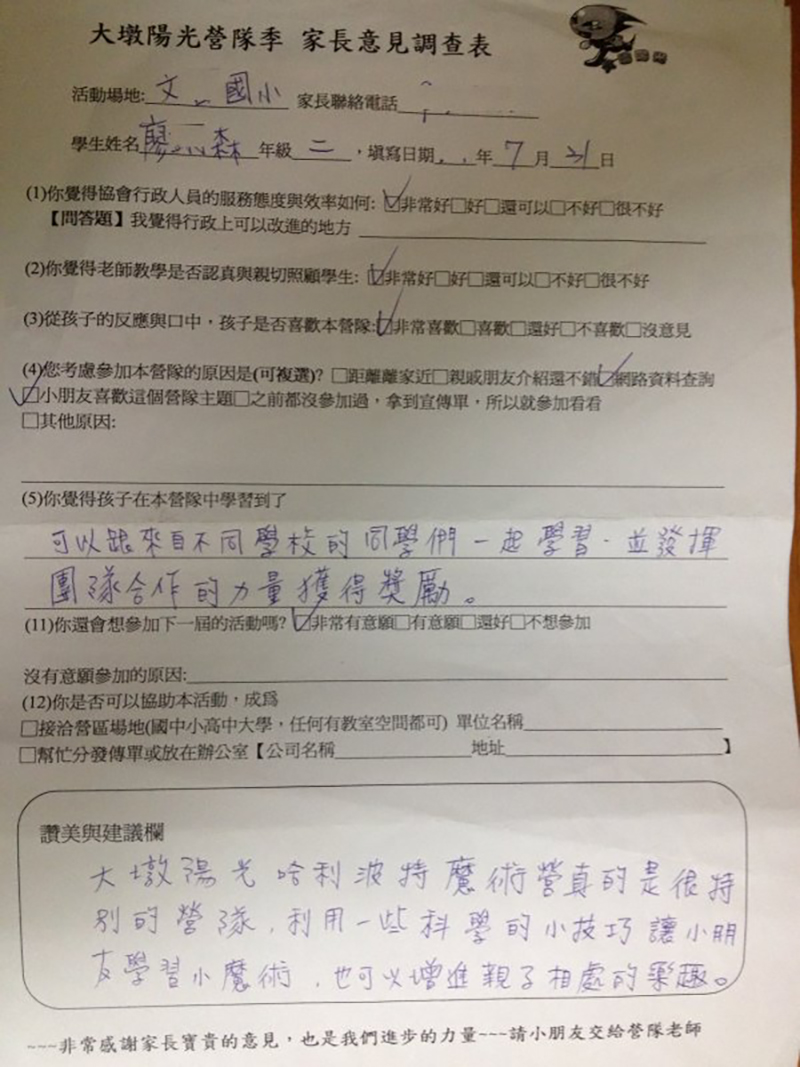 大墩陽光營隊季 家長意見調查表
活動場地: 文 國小 家長聯絡電話
學生姓名 廖 森 年級 二 ，填寫日期 年 7 月 31 日
(1)你覺得協會行政人員的服務態度與效率如何: ☑非常好□好□還可以□不好□很不好
【問答題】我覺得行政上可以改進的地方
(2)你覺得老師教學是否認真與親切照顧學生: ☑非常好□好□還可以□不好□很不好
(3)從孩子的反應與口中，孩子是否喜歡本營隊:☑非常喜歡□喜歡□還好□不喜歡□沒意見
(4)您考慮參加本營隊的原因是(可複選)? □距離離家近□親戚朋友介紹還不錯☑網路資料查詢
☑小朋友喜歡這個營隊主題□之前都沒參加過，拿到宣傳單，所以就參加看看
□其他原因:
(5)你覺得孩子在本營隊中學習到了
可以跟來自不同學校的同學們一起學習．並發揮
團隊合作的力量獲得獎勵。
(11)你還會想參加下一屆的活動嗎? ☑非常有意願□有意願□還好□不想參加
沒有意願參加的原因:
(12)你是否可以協助本活動，成為
□接洽營區場地(國中小高中大學，任何有教室空間都可) 單位名稱
□幫忙分發傳單或放在辦公室【公司名稱 地址 】
讚美與建議欄
大墩陽光哈利波特魔術營真的是很特
別的營隊，利用一些科學的小技巧讓小朋
友學習小魔術，也可以增進親子相處的樂趣。
~~~非常感謝家長寶貴的意見，也是我們進步的力量~~~請小朋友交給營隊老師